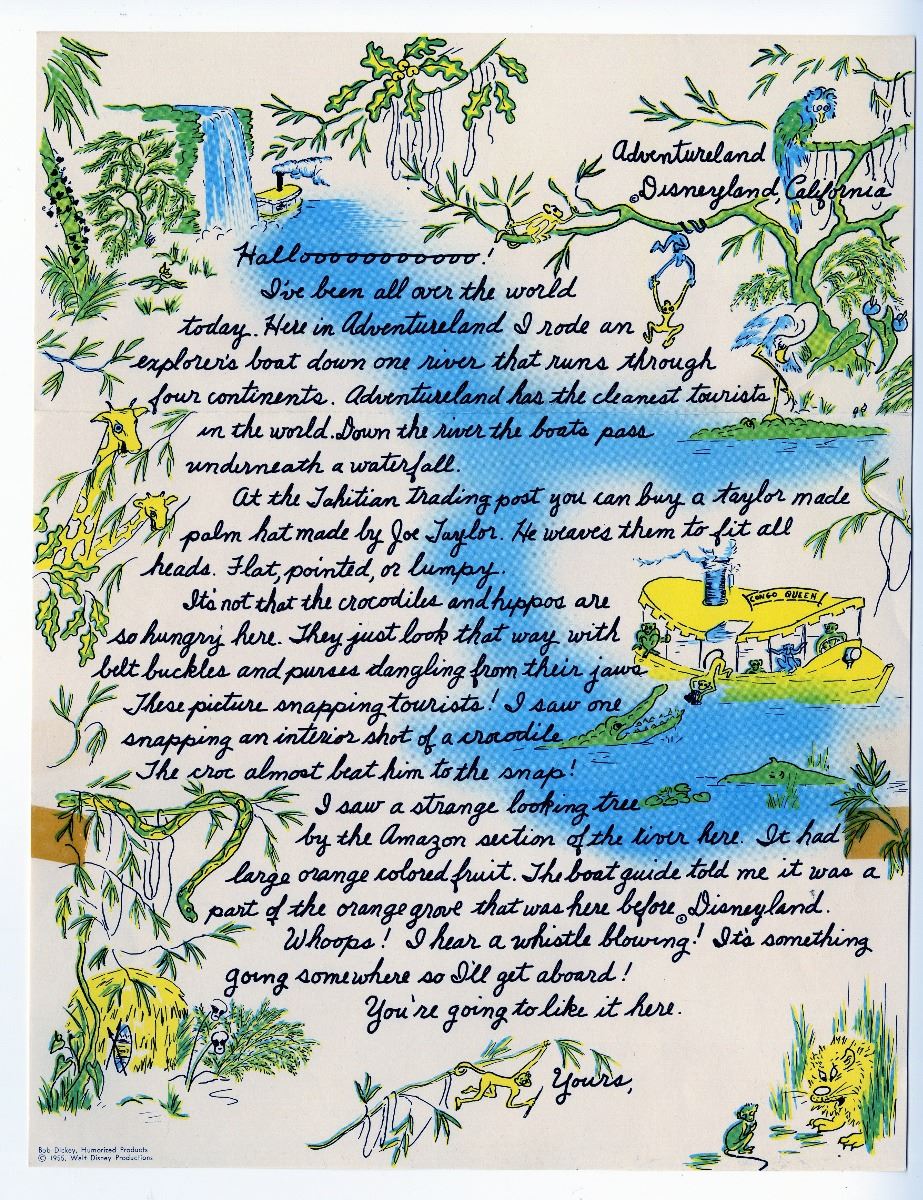 Adventureland
©Disneyland, California
Hallooooooooooo!
I've been all over the world
today. Here in Adventureland I rode an
explorer's boat down one river that runs through
four continents. Adventureland has the cleanest tourists
in the world. Down the river the boats pass
underneath a waterfall.
At the Tahitian trading post you can buy a taylor made
palm hat made by Joe Taylor. He weaves them to fit all
heads. Flat, pointed, or lumpy.
It's not that the crocodiles and hippos are
so hungry here. They just look that way with
belt buckles and purses dangling from their jaws
These picture snapping tourists! I saw one
snapping an interior shot of a crocodile
The croc almost beat him to the snap!
I saw a strange looking tree
by the Amazon section of the river here. It had
large orange colored fruit. The boat guide told me it was a
part of the orange grove that was here before ©Disneyland.
Whoops! I hear a whistle blowing! It's something
going somewhere so I'll get aboard!
You're going to like it here.
Yours,
CONGO QUEEN
Bob Dickey, Humorized Products
© 1955, Walt Disney Productions